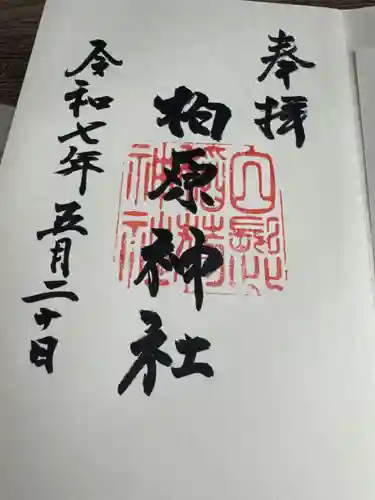 奉拝
柏原神社
令和七年五月二十日